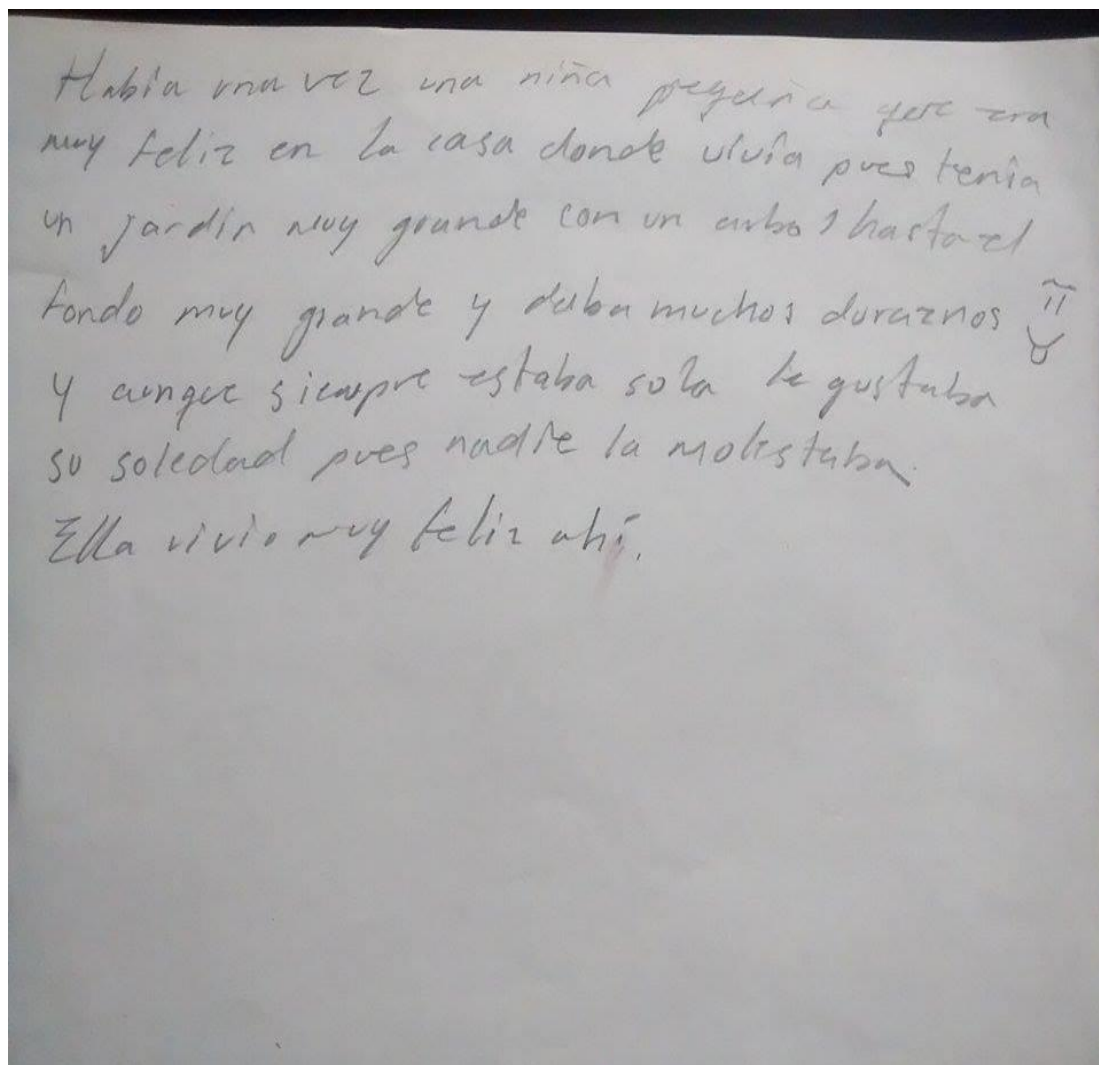 Había una vez una niña pequeña que era
muy feliz en la casa donde vivía pues tenía
un jardín muy grande con un arbol hasta el
fondo muy grande y daba muchos duraznos
y aunque siempre estaba sola le gustaba
su soledad pues nadie la molestaba.
Ella vivio muy feliz ahí.